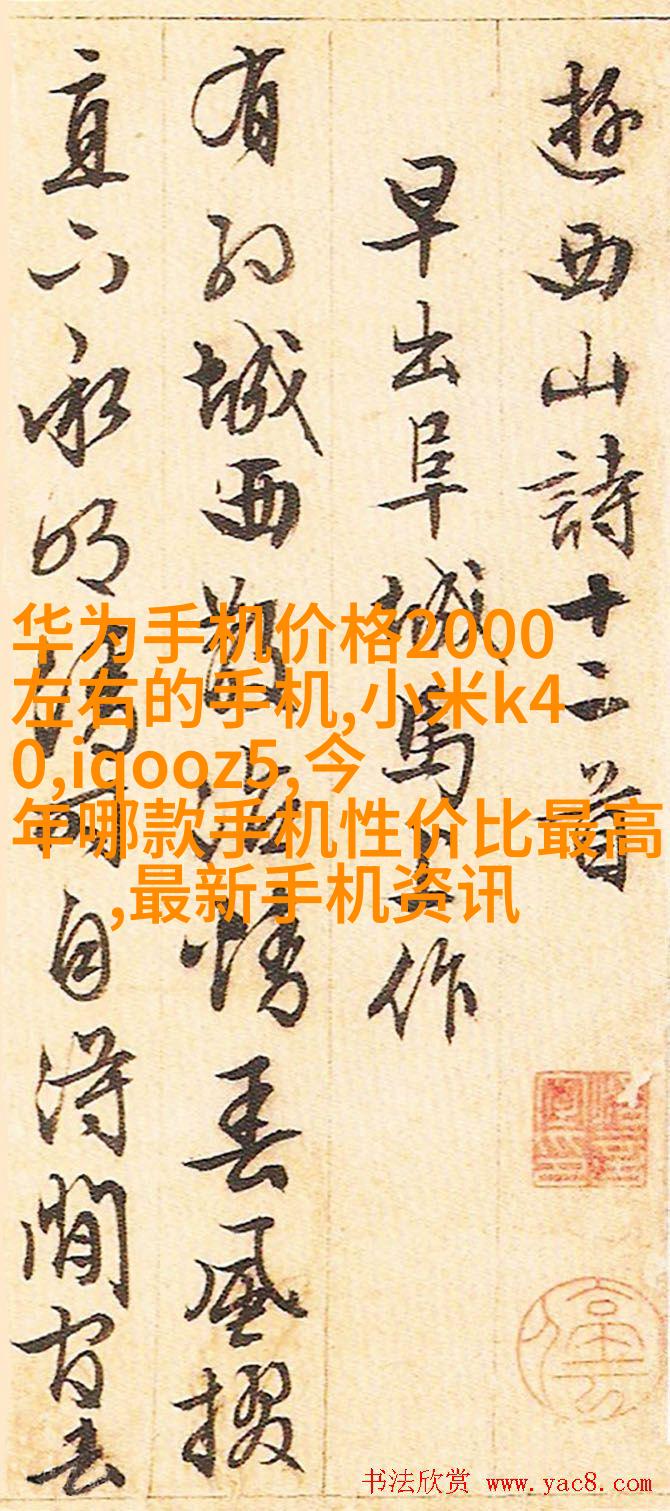 遊西山詩十二首
早出阜城馬上作
有約城西散冶情春風掇
直下承明清時自得閒官
华为手机价格2000
左右的手机,小米k4
0,iqooz5,今
年哪款手机性价比最高
,最新手机资讯
书法欣赏 www.yac8.com